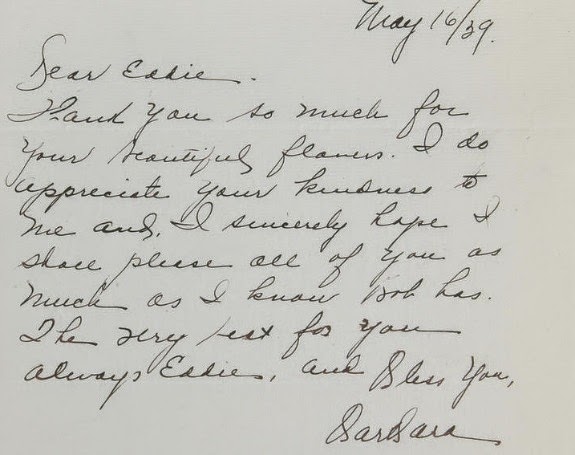 May 16/39.
Dear Eddie.
Thank you so much for
your beautiful flowers. I do
appreciate your kindness to
me and, I sincerely hope I
shall please all of you as
much as I know Bob has.
The very best for you
always Eddie, and Bless You,
Barbara